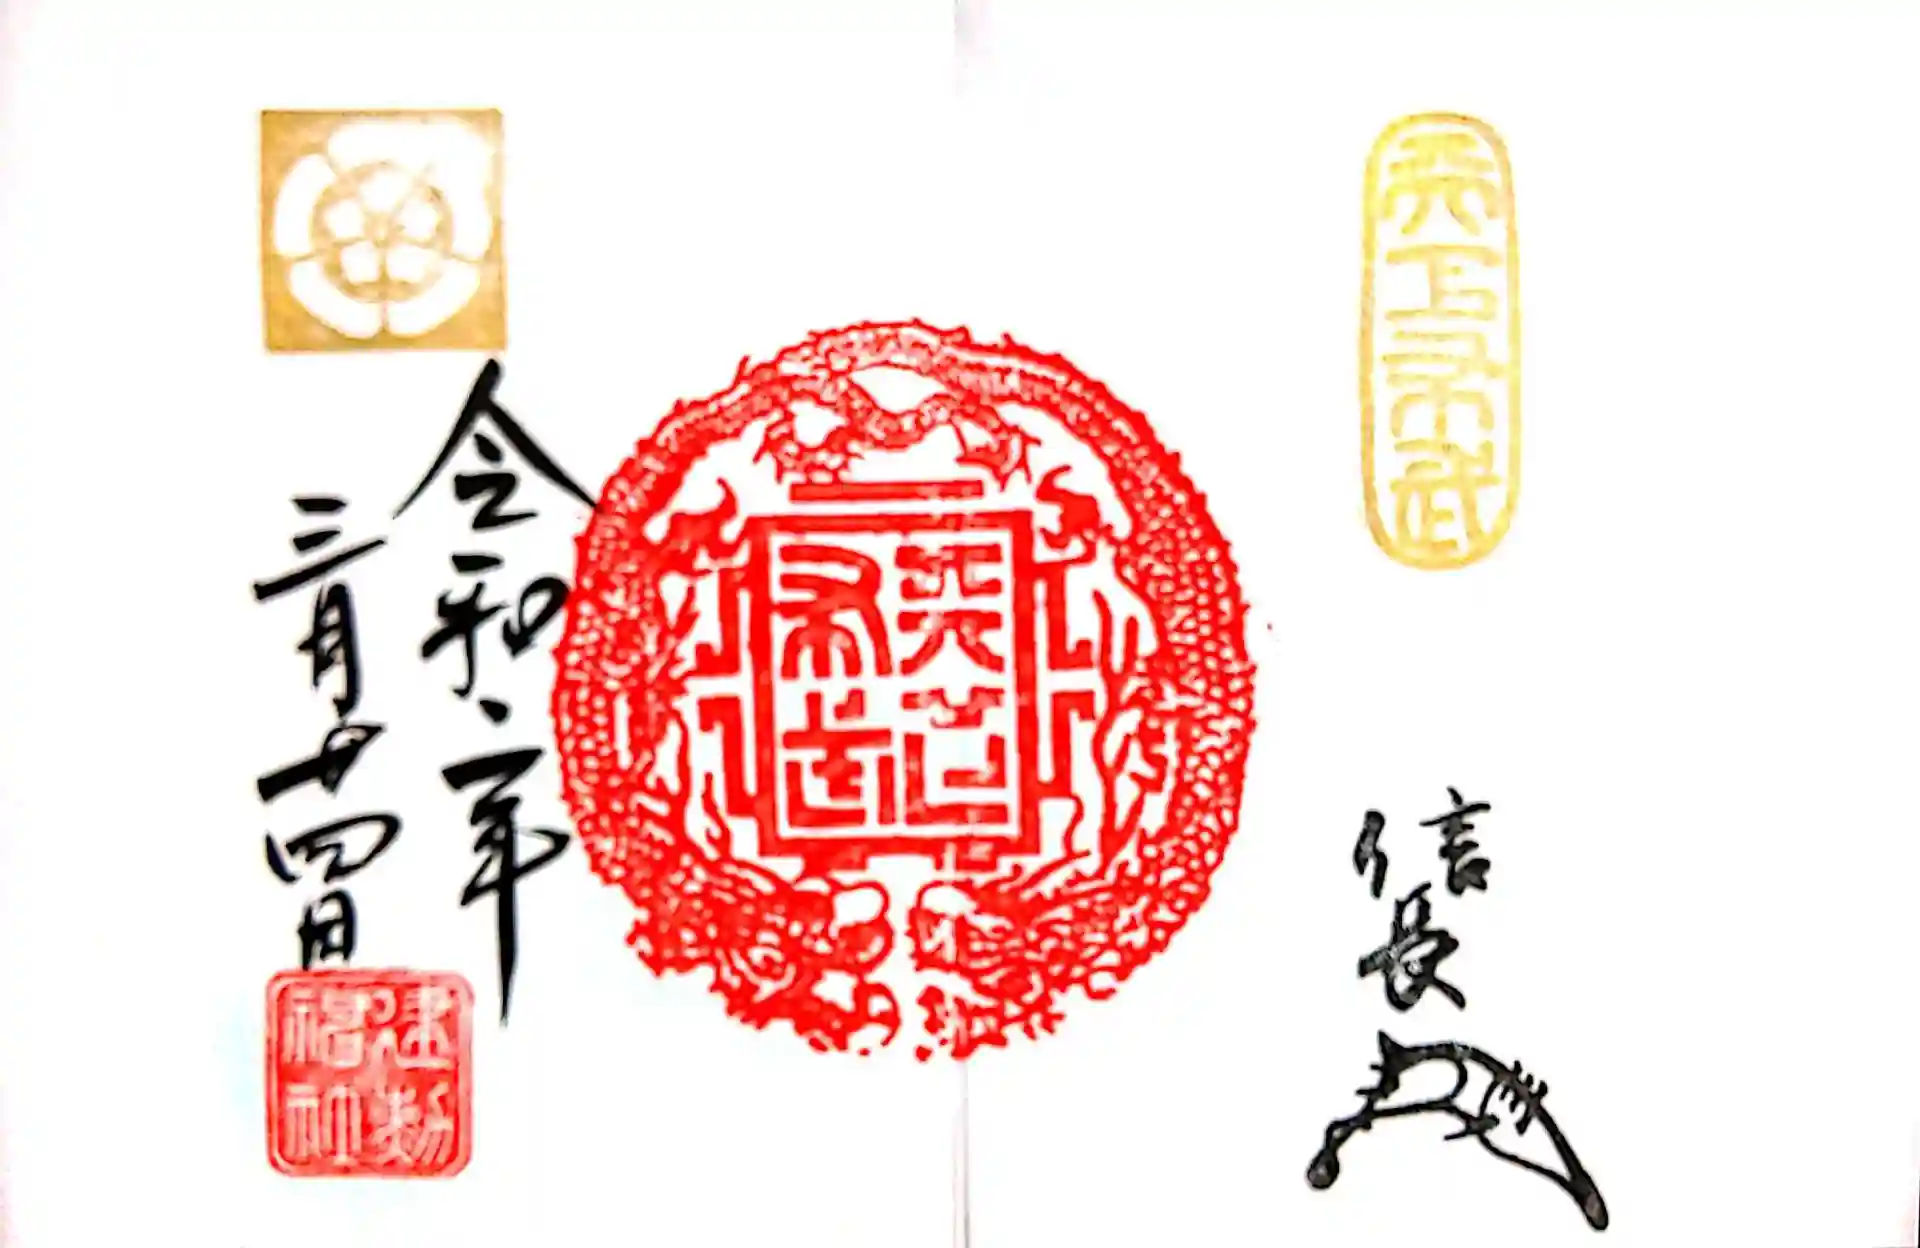 天下布武
信長
天下
布武
令和二年
三月廿四日
建勲
神社